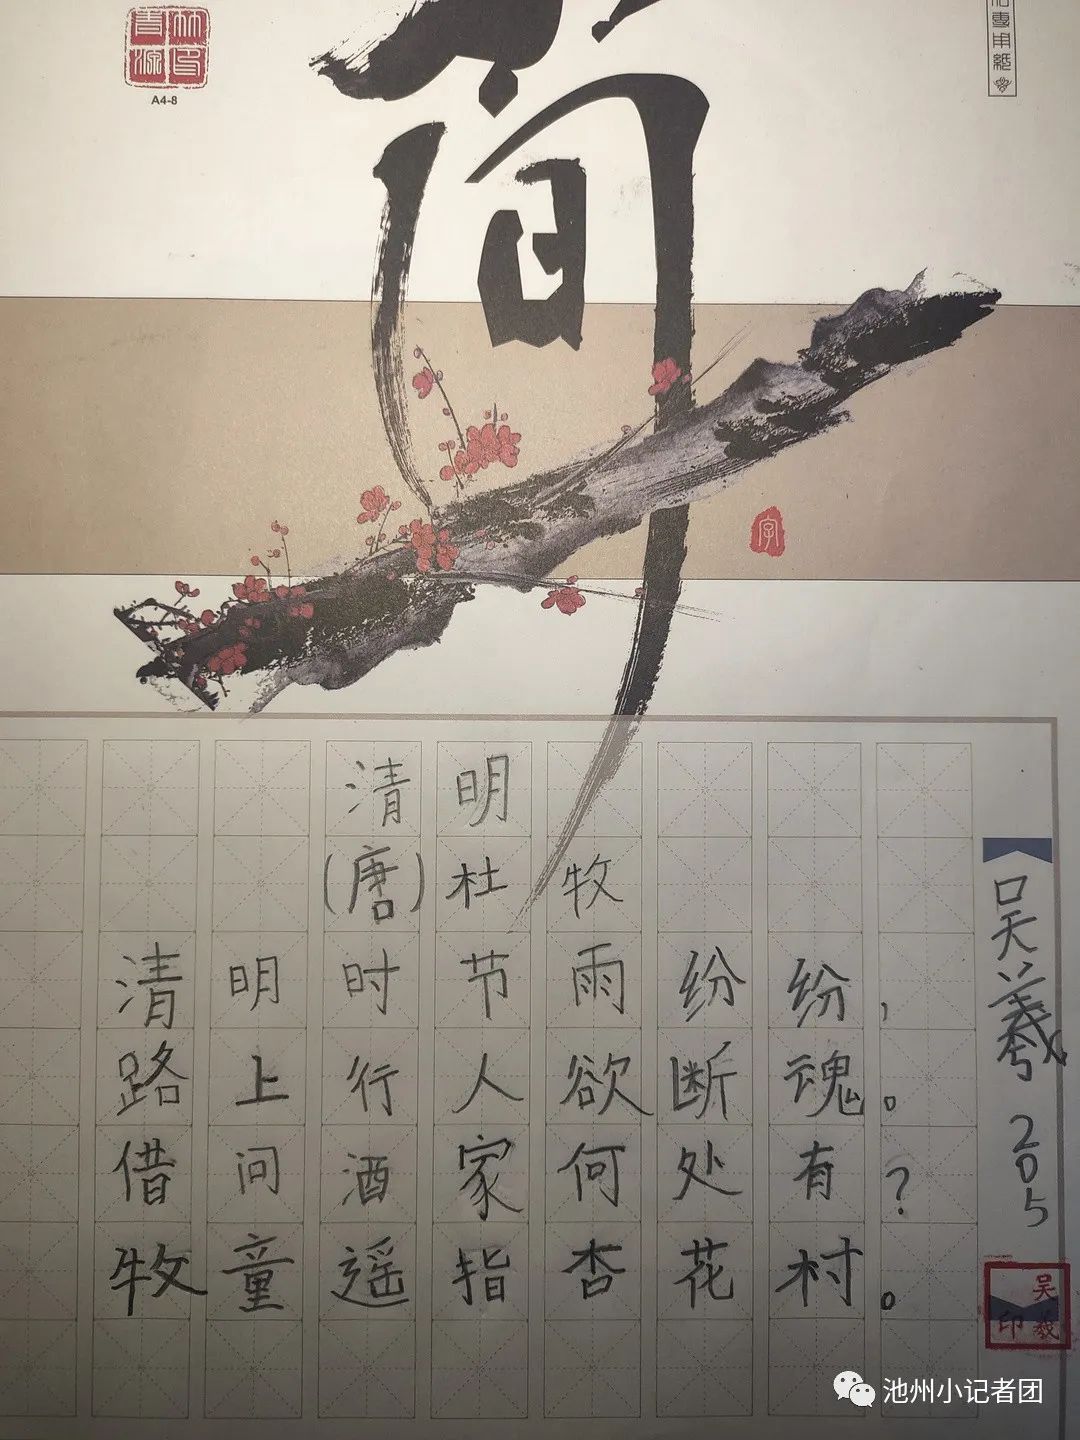 A4-8
專用紙
简
字
清明
(唐)杜牧
清明时节雨纷纷,
路上行人欲断魂。
借问酒家何处有?
牧童遥指杏花村。
吴羲 205
吴羲印
池州小记者团